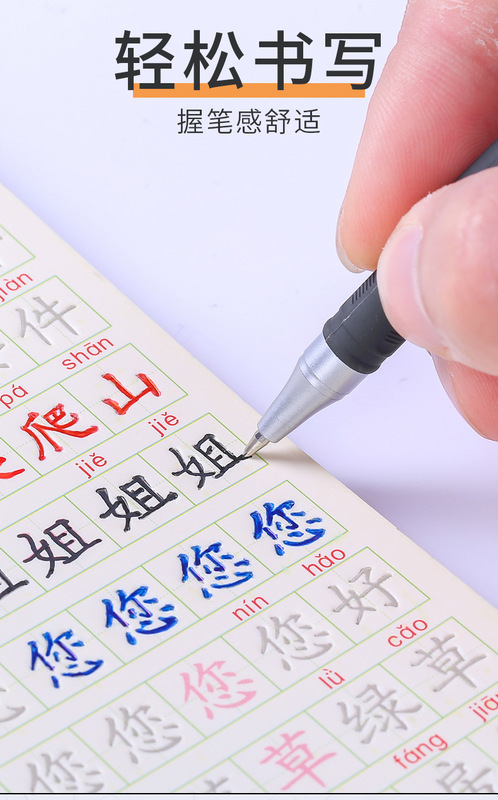 轻松书写
握笔感舒适
jiàn
件
pá shān
爬山
jiě jiě
姐姐姐
您您您您
nín hǎo
您您您您好
lǜ cǎo
草绿草
fáng
房